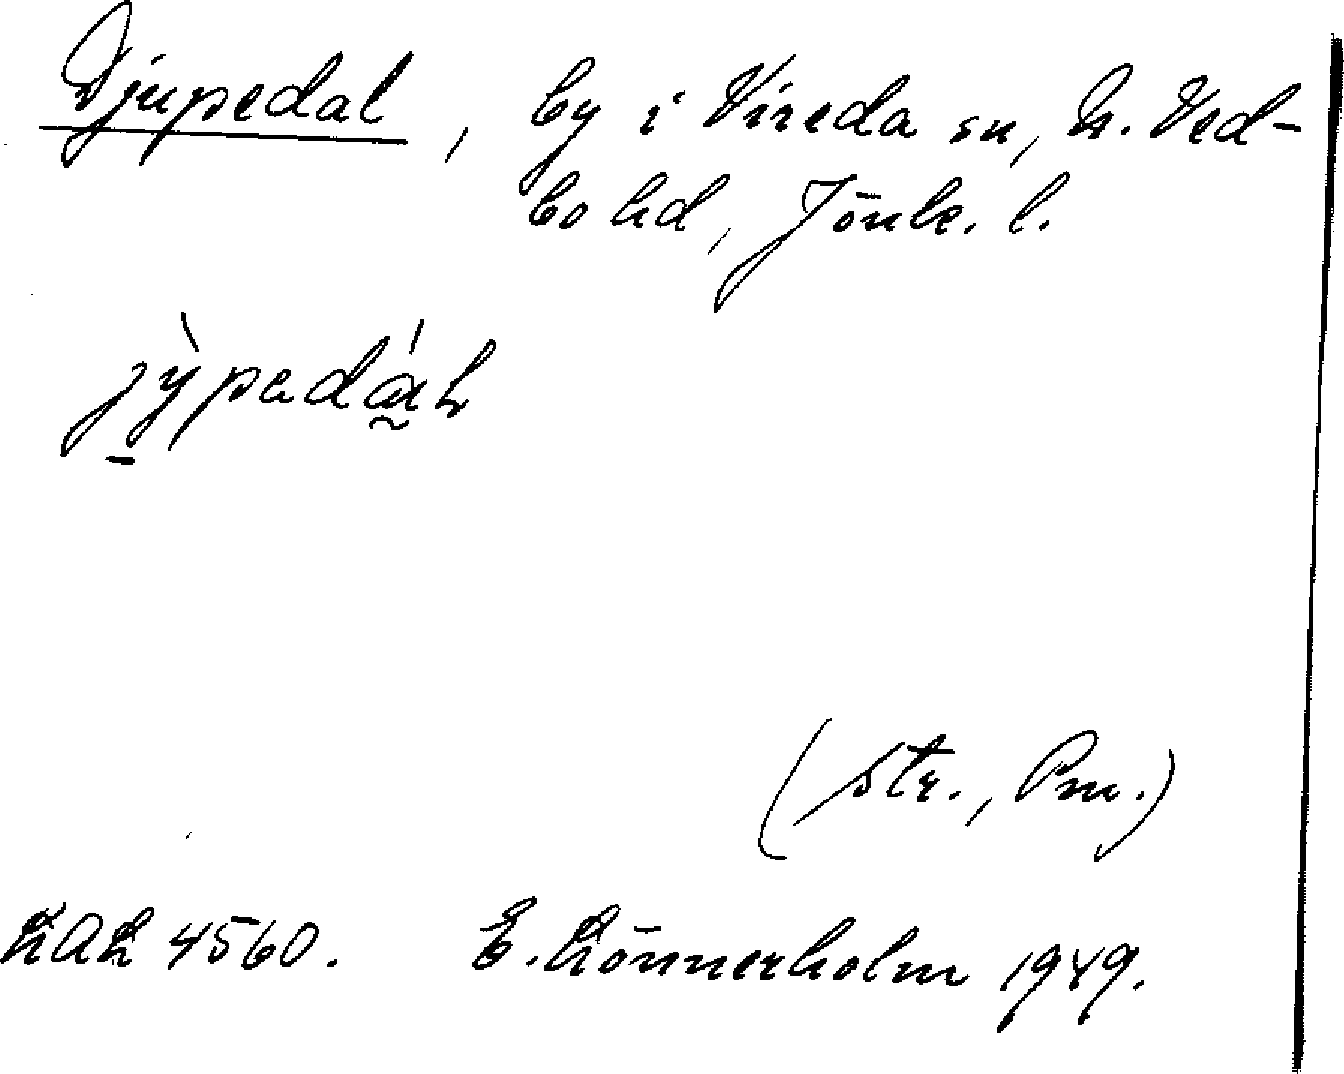 Djupedal, by i Vireda sn, N. Ved-
bo hd, Jönk. l.
jỳ̠padá̰ʟ
(Str., Pm.)
LAL 4560. E. Lönnerholm 1949.